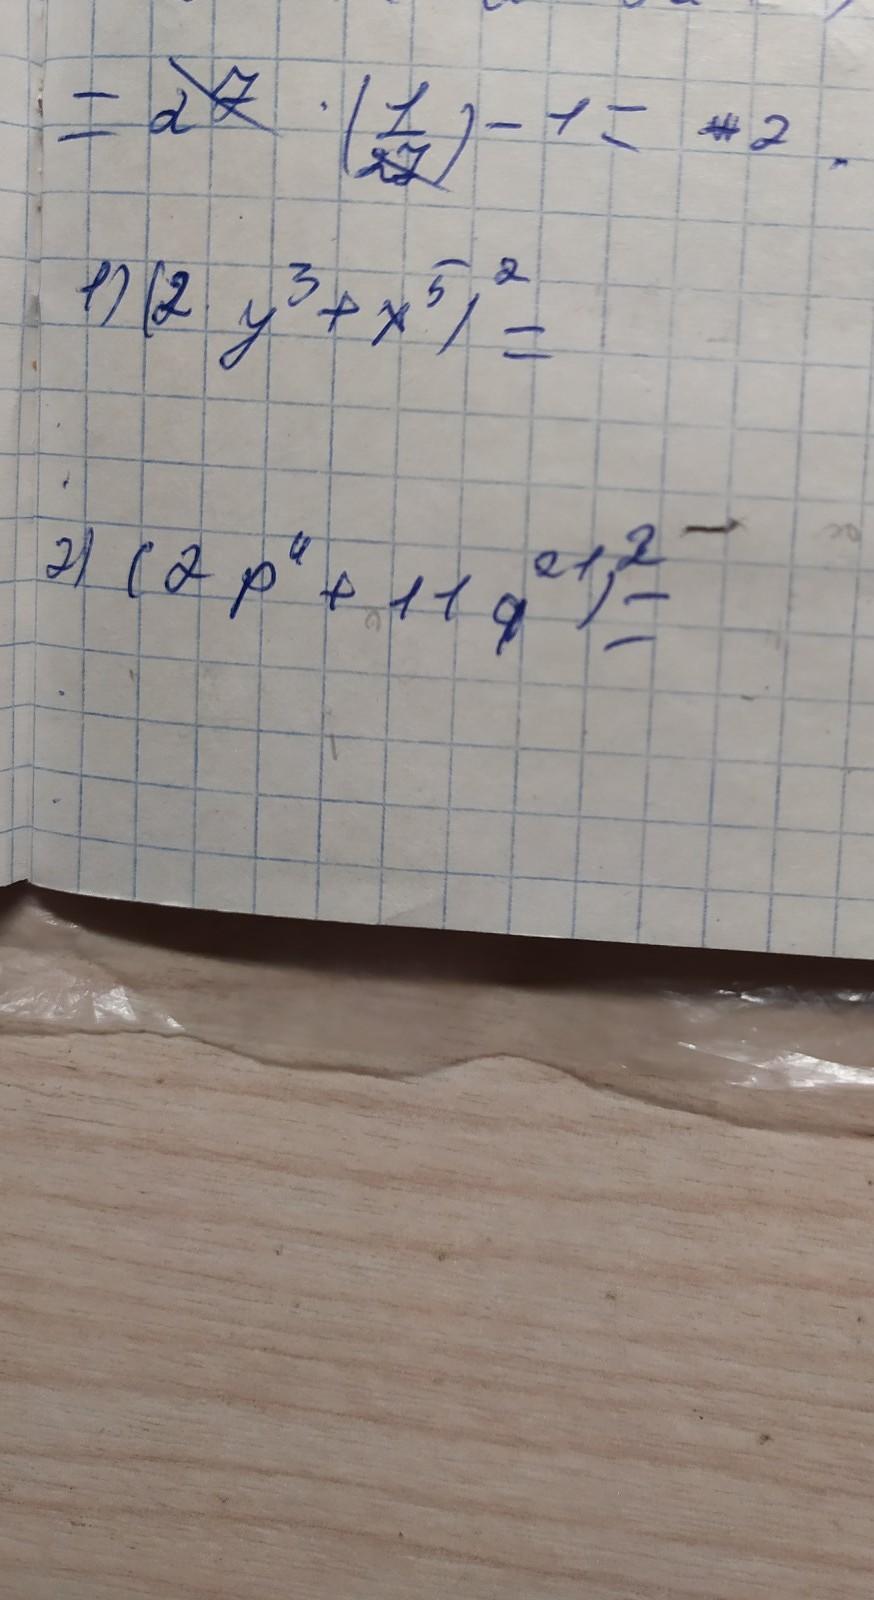 = 27 · (1/27) - 1 = 2
1) (2 y³ + x⁵)² =
2) (2 p⁴ + 11 q²¹)² =